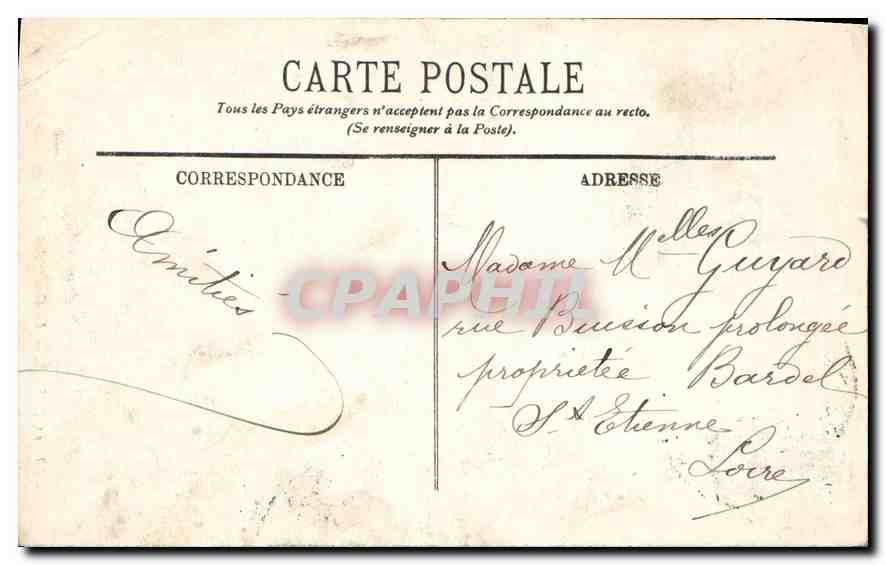 CARTE POSTALE
Tous les Pays étrangers n'acceptent pas la Correspondance au recto.
(Se renseigner à la Poste).
CORRESPONDANCE
Amitiés
ADRESSE
Madame Melles Guyard
rue Buisson prolongée
proprietée Bardel
St Etienne
Loire
CPAPHIL